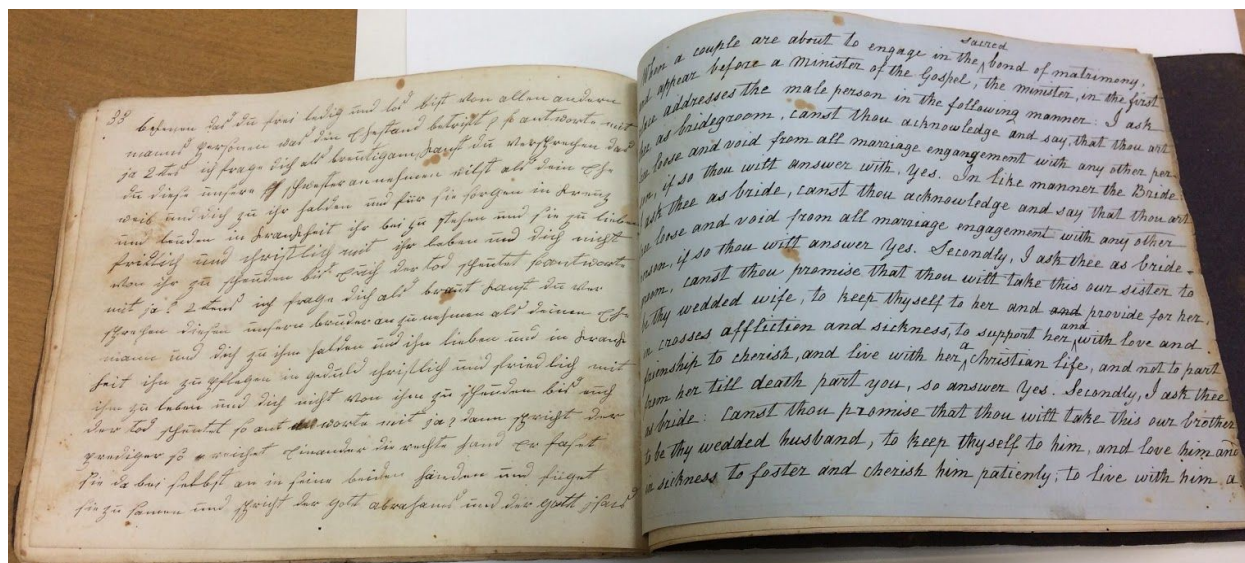 33
bekennen das du frei ledig und los bist von allen andern
manns personen was den Ehestand betrift so antworte mit
ja 2tes ich frage dich als breutigam kanst du versprechen das
du diese unsere schwester annehmen wilst als dein Ehe
weib und dich zu ihr halden und für sie sorgen in kreuz
und leiden in krankheit ihr bei zu stehen und sie zu lieben
fridlich und christlich mit ihr leben und dich nicht
von ihr zu scheuden bis Euch der tod scheutet so antworte
mit ja 2tens ich frage dich als braut kanst du ver
sprechen diesen unsern bruder an zu nehmen als deinen Ehe
mann und dich zu ihm halden und ihn lieben und in krank
heit ihn zu pflegen in geduld christlich und friedlich mit
ihm zu leben und dich nicht von ihm zu scheuden bis euch
der tod scheutet so antworte mit ja dann spricht der
prediger so reichet Einander die rechte hand Er fasset
sie da bei selbst an in seine beiden händen und füget
sie zu samen und spricht der gott abrahams und der gott isaacs
When a couple are about to engage in the sacred bond of matrimony,
and appear before a minister of the Gospel, the minister, in the first
place addresses the male person in the following manner: I ask
thee as bridegroom, canst thou acknowledge and say, that thou art
free loose and void from all marriage engangement with any other per-
son, if so thou wilt answer with, yes. In like manner the Bride:
I ask thee as bride, canst thou acknowledge and say that thou art
free loose and void from all marriage engagement with any other
person, if so thou wilt answer Yes. Secondly, I ask thee as bride-
groom, canst thou promise that thou wilt take this our sister to
be thy wedded wife, to keep thyself to her and and provide for her,
in crosses affliction and sickness, to support her, and with love and
friendship to cherish, and live with her, a Christian life, and not to part
from her till death part you, so answer Yes. Secondly, I ask thee
as bride: Canst thou promise that thou wilt take this our brother
to be thy wedded husband, to keep thyself to him, and love him and
in sickness to foster and cherish him patiently, to live with him, a